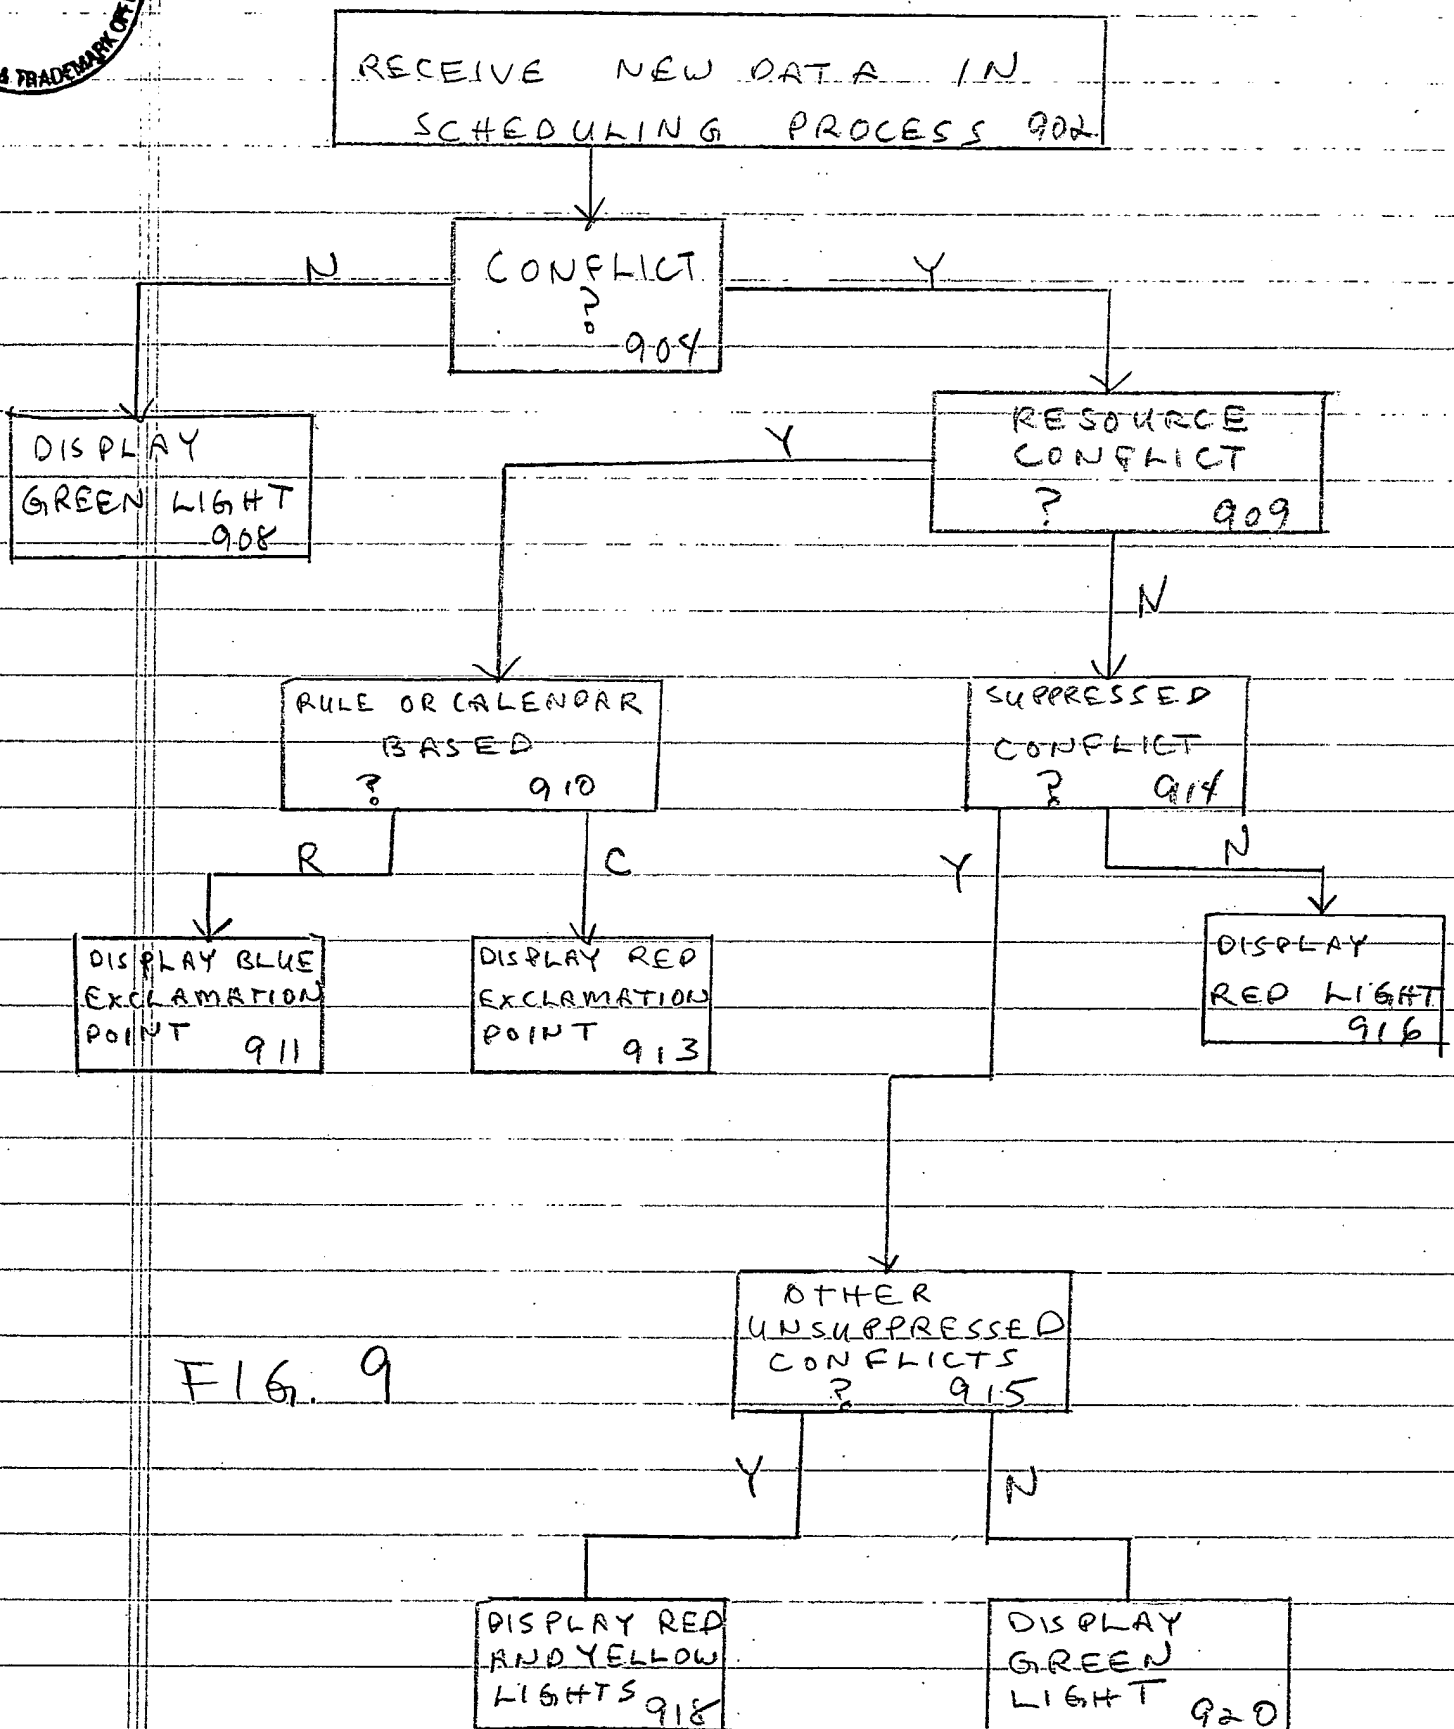 & TRADEMARK OFF
RECEIVE NEW DATA IN
SCHEDULING PROCESS 902
N
CONFLICT
?
904
Y
DISPLAY
GREEN LIGHT
908
Y
RESOURCE
CONFLICT
? 909
N
RULE OR CALENDAR
BASED
? 910
SUPPRESSED
CONFLICT
? 914
R
C
Y
N
DISPLAY BLUE
EXCLAMATION
POINT 911
DISPLAY RED
EXCLAMATION
POINT 913
DISPLAY
RED LIGHT
916
OTHER
UNSUPPRESSED
CONFLICTS
? 915
FIG. 9
Y
N
DISPLAY RED
AND YELLOW
LIGHTS 918
DISPLAY
GREEN
LIGHT 920